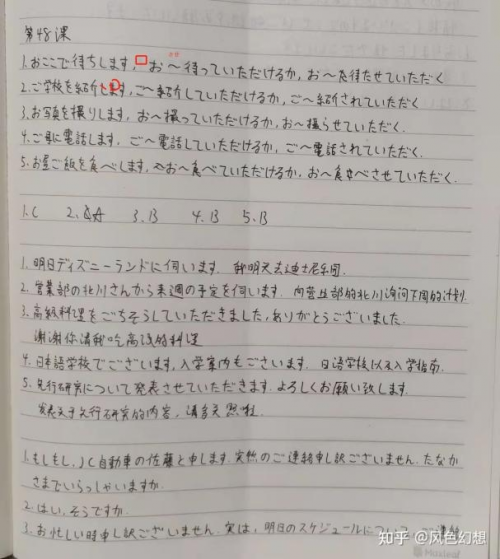 第48课
1.おここで待ちします、お〜待っていただけるか、お〜を待たせていただく
2.ご学校を紹介します、ご〜紹介していただけるか、ご〜紹介されていただく
3.お写真を撮りします、お〜撮っていただけるか、お〜撮らせていただく.
4.ご母に電話します、ご〜電話していただけるか、ご〜電話されていただく.
5.お昼ご飯を食べします、お〜食べていただけるか、お〜食べさせていただく.
1.C 2.A 3.B 4.B 5.B
1.明日ディズニーランドに伺います. 我明天去迪士尼乐园.
2.営業部の北川さんから来週の予定を伺います. 向营业部的北川询问下周的计划.
3.高級料理をごちそうしていただきました,ありがとうございました.
谢谢你请我吃高级的料理
4.日本語学校でございます,入学案内もございます. 日语学校以及入学指南.
5.先行研究について発表させていただきます.よろしくお願い致します.
发表关于先行研究的内容,请多关照.
1.もしもし,JC自動車の佐藤と申します.突然のご連絡申し訳ございません.たなか
さまでいらっしゃいますか.
2.はい,そうですが.
3.お忙しい時申し訳ございません.実は,明日のスケジュールについて
知乎 @风色幻想